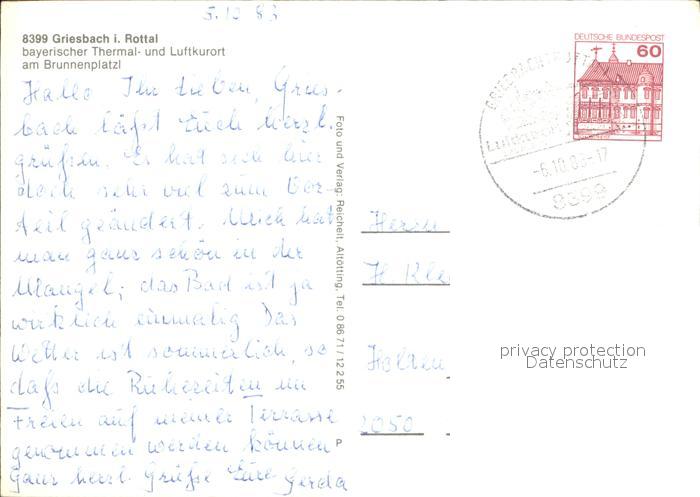 5.10 83
8399 Griesbach i. Rottal
bayerischer Thermal- und Luftkurort
am Brunnenplatzl
Hallo Ihr Lieben, Gries-
bach läßt Euch herzl.
grüßen. Er hat sich hier
doch sehr viel zum Vor-
teil geändert. Mich hat
man ganz schön in der
Mangel; das Bad ist ja
wirklich einmalig Das
Wetter ist sommerlich, so
daß die Ruhezeiten im
Freien auf meiner Terrasse
genommen werden können
ganz herzl. Grüße Eure Gerda
Foto und Verlag: Reichelt, Altötting, Tel. 0 86 71 / 12 2 55
P
DEUTSCHE BUNDESPOST
60
-6.10.83-17
8399
Herrn
H. Kle
Holden
2050
privacy protection
Datenschutz